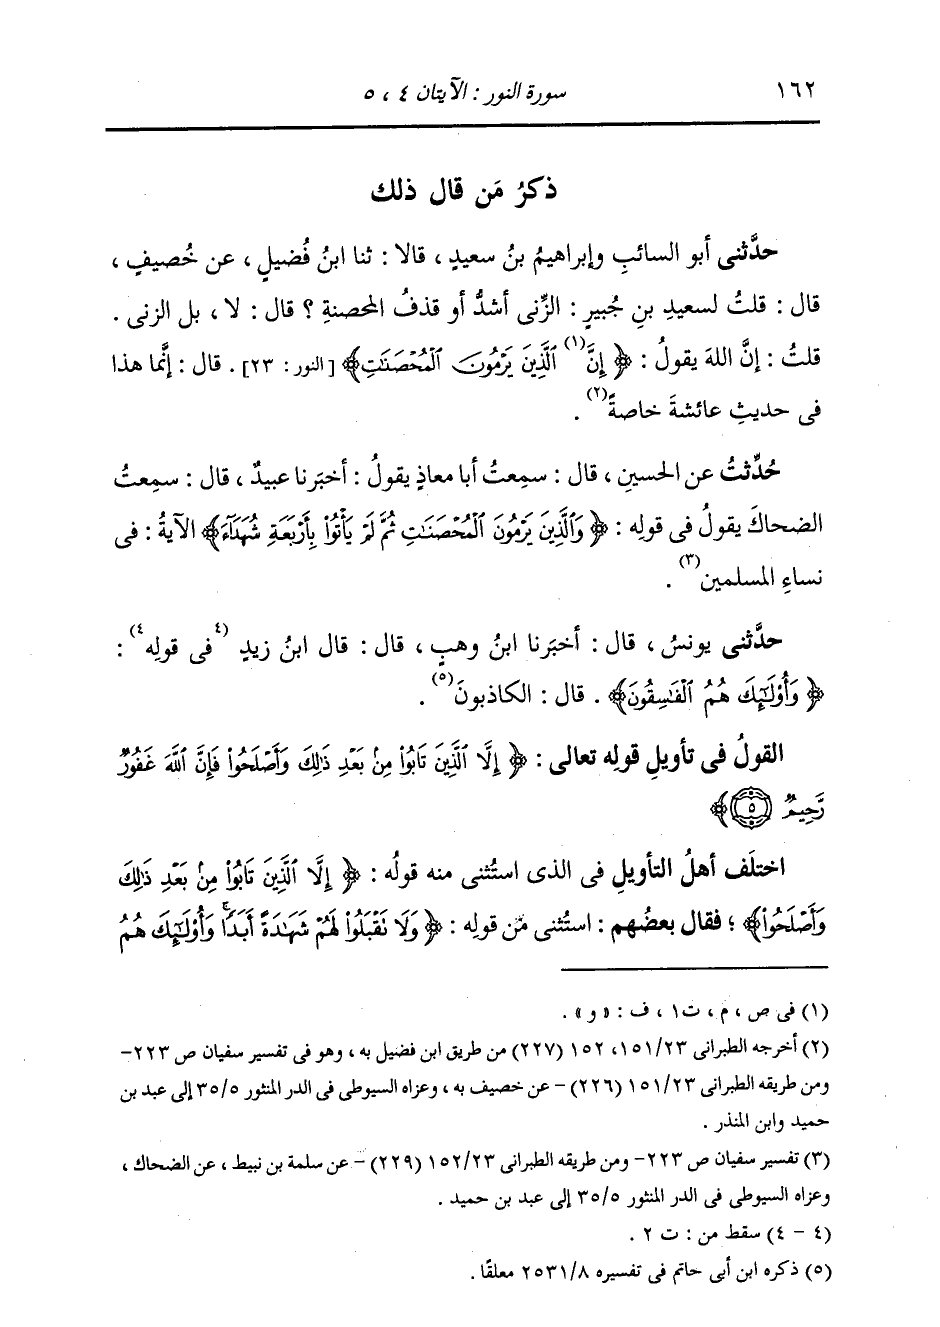 ١٦٢ سورة النور : الآيتان ٤ ، ٥
ذكرُ مَن قال ذلك
حدَّثنى أبو السائبِ وإبراهيمُ بنُ سعيدٍ ، قالا : ثنا ابنُ فُضيلٍ ، عن خُصيفٍ ،
قال : قلتُ لسعيدِ بنِ جُبيرٍ : الزِّنى أشدُّ أو قذفُ المحصنةِ ؟ قال : لا ، بل الزنى .
قلتُ : إنَّ اللهَ يقولُ : ﴿ إِنَّ(١) ٱلَّذِينَ يَرْمُونَ ٱلْمُحْصَنَٰتِ﴾ [النور : ٢٣] . قال : إنَّما هذا
فى حديثِ عائشةَ خاصةً(٢) .
حُدِّثتُ عن الحسينِ ، قال : سمِعتُ أبا معاذٍ يقولُ : أخبَرنا عبيدٌ ، قال : سمِعتُ
الضحاكَ يقولُ فى قولِه : ﴿ وَٱلَّذِينَ يَرْمُونَ ٱلْمُحْصَنَٰتِ ثُمَّ لَمْ يَأْتُوا۟ بِأَرْبَعَةِ شُهَدَآءَ﴾ الآيةُ : فى
نساءِ المسلمين(٣) .
حدَّثنى يونسُ ، قال : أخبَرنا ابنُ وهبٍ ، قال : قال ابنُ زيدٍ (٤فى قولِه٤) :
﴿ وَأُو۟لَٰٓئِكَ هُمُ ٱلْفَٰسِقُونَ﴾ . قال : الكاذبونَ(٥) .
القولُ فى تأويلِ قولِه تعالى : ﴿ إِلَّا ٱلَّذِينَ تَابُوا۟ مِنۢ بَعْدِ ذَٰلِكَ وَأَصْلَحُوا۟ فَإِنَّ ٱللَّهَ غَفُورٌ
رَّحِيمٌ ٥﴾
اختلَف أهلُ التأويلِ فى الذى استُثنى منه قولُه : ﴿ إِلَّا ٱلَّذِينَ تَابُوا۟ مِنۢ بَعْدِ ذَٰلِكَ
وَأَصْلَحُوا۟﴾ ؛ فقال بعضُهم : استُثنى مِّن قولِه : ﴿ وَلَا تَقْبَلُوا۟ لَهُمْ شَهَٰدَةً أَبَدًا ۚ وَأُو۟لَٰٓئِكَ هُمُ
(١) فى ص ، م ، ت١ ، ف : «و» .
(٢) أخرجه الطبرانى ١٥١/٢٣، ١٥٢ (٢٢٧) من طريق ابن فضيل به ، وهو فى تفسير سفيان ص ٢٢٣-
ومن طريقه الطبرانى ١٥١/٢٣ (٢٢٦) - عن خصيف به ، وعزاه السيوطى فى الدر المنثور ٣٥/٥ إلى عبد بن
حميد وابن المنذر .
(٣) تفسير سفيان ص ٢٢٣- ومن طريقه الطبرانى ١٥٢/٢٣ (٢٢٩) - عن سلمة بن نبيط ، عن الضحاك ،
وعزاه السيوطى فى الدر المنثور ٣٥/٥ إلى عبد بن حميد .
(٤ - ٤) سقط من : ت ٢ .
(٥) ذكره ابن أبى حاتم فى تفسيره ٢٥٣١/٨ معلقًا .